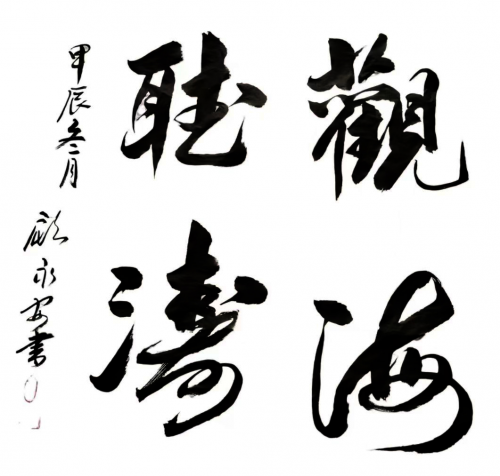 觀海
聽濤
甲辰冬月
顧永安書